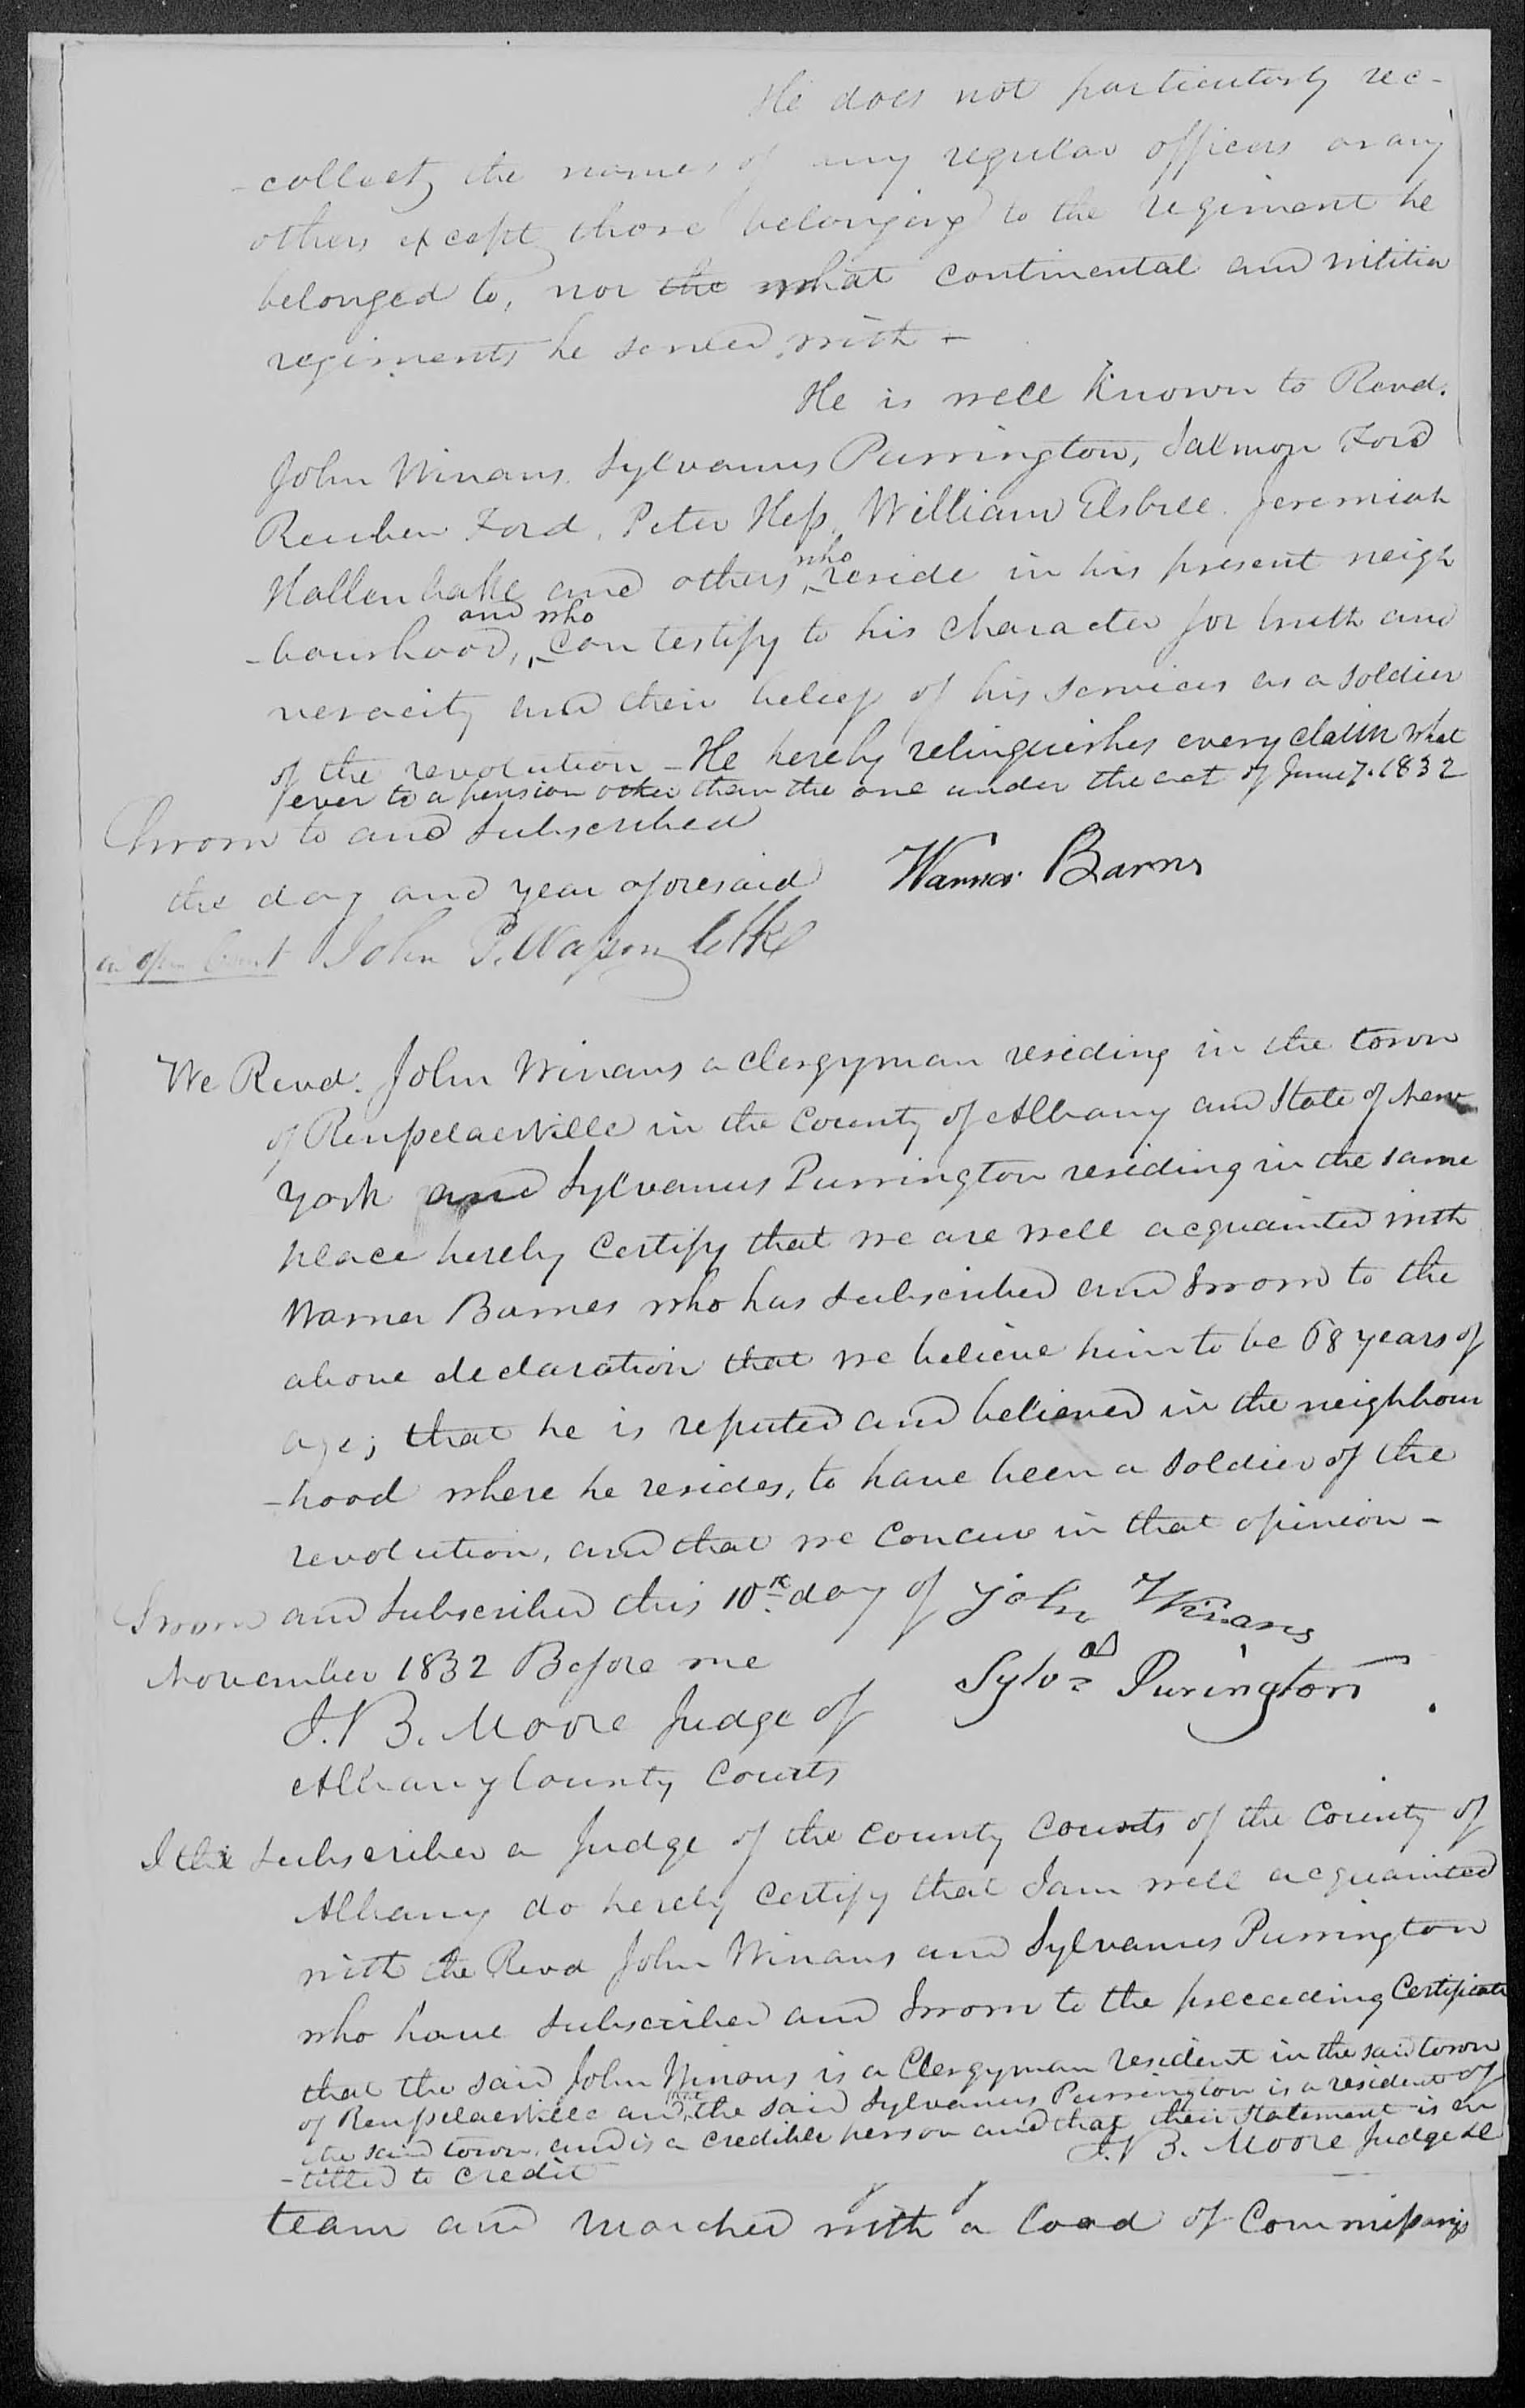 He does not particularly rec-
-collect, the names of any regular officers or any
others except those belonging to the regiment he
belonged to, nor the what continental and militia
regiments he served with -
He is well known to Revd.
John Winans. Sylvanus Purrington, Salmon Ford
Reuben Ford, Peter Hess, William Elsbree. Jeremiah
who
Hallenbake and others, reside in his present neigh
and who
-bourhood, can testify to his character for truth and
veracity and their belief of his services as a soldier
of the revolution - He hereby relinquishes every claim what
ever to a pension other than the one under the act of June 7. 1832
Sworn to and subscribed
the day and year aforesaid Warner Barns
in open Court John P. Wasson Clk
We Revd. John Winans a clergyman residing in the town
of Rensselaerville in the County of Albany and State of New
York and Sylvanus Purrington residing in the same
place hereby certify that we are well acquainted with
Warner Barnes who has subscribed and sworn to the
above declaration that we believe him to be 68 years of
age; that he is reputed and believed in the neighbour
-hood where he resides, to have been a soldier of the
revolution, and that we concur in that opinion -
Sworn and subscribed this 10th day of John Winans
November 1832 Before me Sylvs Purington
J. B. Moore Judge of
Albany County Courts
I the subscriber a Judge of the county courts of the County of
Albany do hereby certify that I am well acquainted
with the Revd John Winans and Sylvanus Purrington
who have subscribed and sworn to the preceeding Certificate
that the said John Winans is a Clergyman resident in the said town
that
of Rensselaerville and the said Sylvanus Purrington is a resident of
the said town, and is a credible person and that their statement is en
-titled to credit J. B. Moore Judge &c
team and marched with a load of Commissarys